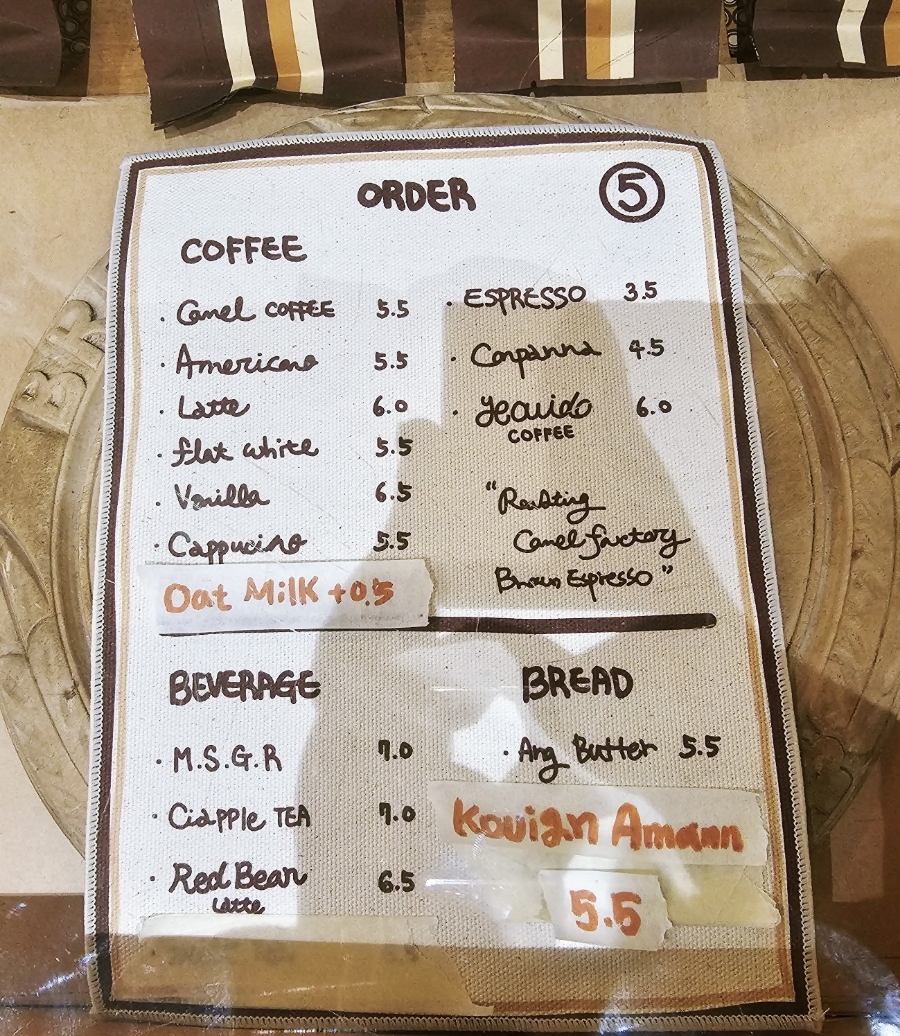 ORDER
5
COFFEE
· Camel COFFEE 5.5
· Americano 5.5
· Latte 6.0
· flat white 5.5
· Vanilla 6.5
· Cappucino 5.5
Oat Milk +0.5
· ESPRESSO 3.5
· Conpanna 4.5
· Yeouido 6.0
COFFEE
"Roasting
Camel factory
Brown Espresso"
BEVERAGE
· M.S.G.R 7.0
· Ciapple TEA 7.0
· Red Bean 6.5
Latte
BREAD
· Ang Butter 5.5
Kouign Amann
5.5